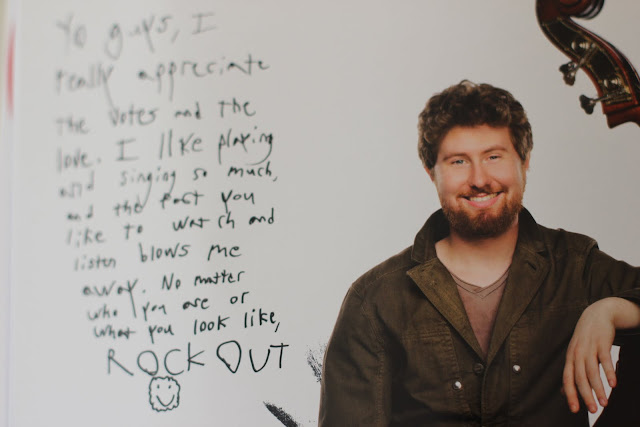 Yo guys, I
really appreciate
the votes and the
love. I like playing
and singing so much,
and the fact you
like to watch and
listen blows me
away. No matter
who you are or
what you look like,
ROCK OUT